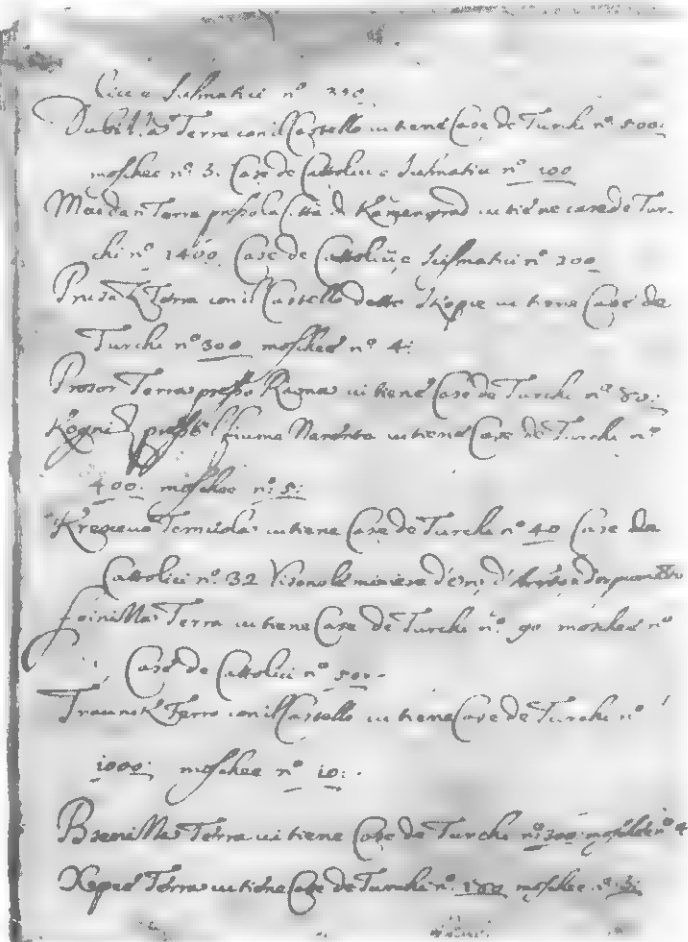 lici e Scismatici nº 350
Dubitza Terra con il Castello vi tiene Case de Turchi nº 500:
moschee nº 3. Case de Cattolici e Scismatici nº 100
Maidan Terra presso la Città di Kamengrad vi tiene case de Tur-
chi nº 1400 Case de Cattolici e Scismatici nº 200
Prusatz Terra con il Castello detto Skopie vi tiene Case de
Turchi nº 300 moschee nº 4:
Prosor Terra presso Rama vi tiene Case de Turchi nº 80:
Kogniz presso il fiume Narenta vi tiene Case de Turchi nº
400: moschee nº 5:
Kresevo vi tiene Case de Turchi nº 40 Case de
Cattolici nº 32 Vi sono le miniere
Foinitza Terra vi tiene Case de Turchi nº 90 moschee nº
Case de Cattolici nº 50:
Traunik Terra con il Castello vi tiene Case de Turchi nº
1000: moschee nº 10:
Terra vi tiene Case de Turchi nº 300: moschee nº 4
Xepce Terra vi tiene Case de Turchi nº 180 moschee nº 3: